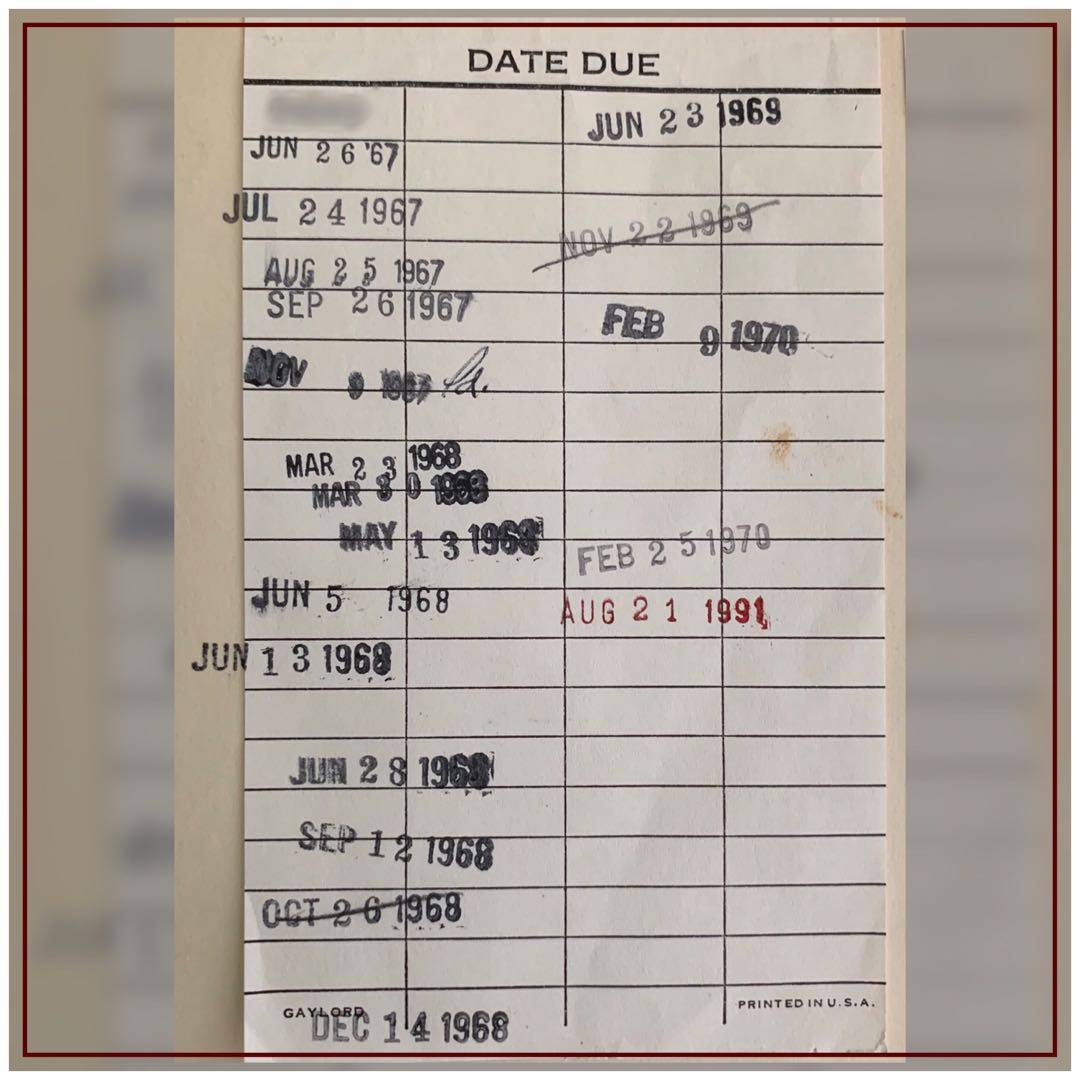 DATE DUE
JUN 26 '67
JUL 24 1967
AUG 25 1967
SEP 26 1967
NOV 9 1967
MAR 23 1968
MAR 30 1968
MAY 13 1968
JUN 5 1968
JUN 13 1968
JUN 28 1968
SEP 12 1968
OCT 26 1968
GAYLORD
DEC 14 1968
JUN 23 1969
NOV 22 1969
FEB 9 1970
FEB 25 1970
AUG 21 1991
PRINTED IN U.S.A.